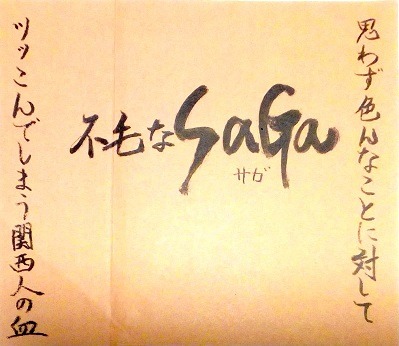 思わず色んなことに対して
不毛なSaGa
サガ
ツッこんでしまう関西人の血